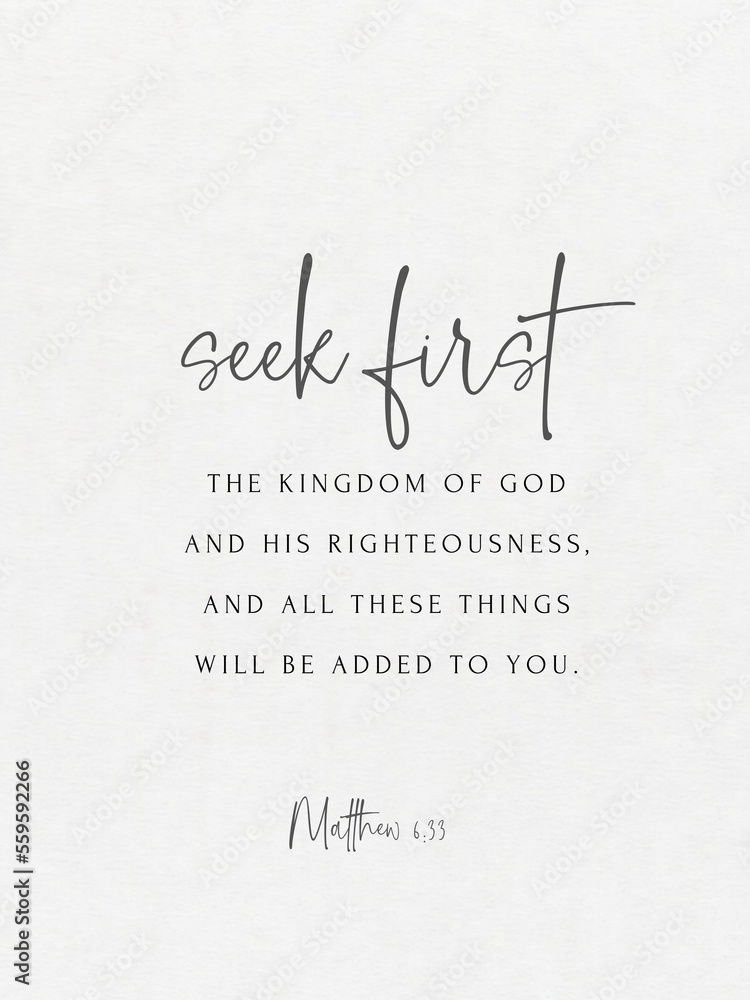 seek first
THE KINGDOM OF GOD
AND HIS RIGHTEOUSNESS,
AND ALL THESE THINGS
WILL BE ADDED TO YOU.
Matthew 6:33
Adobe Stock | #559592266